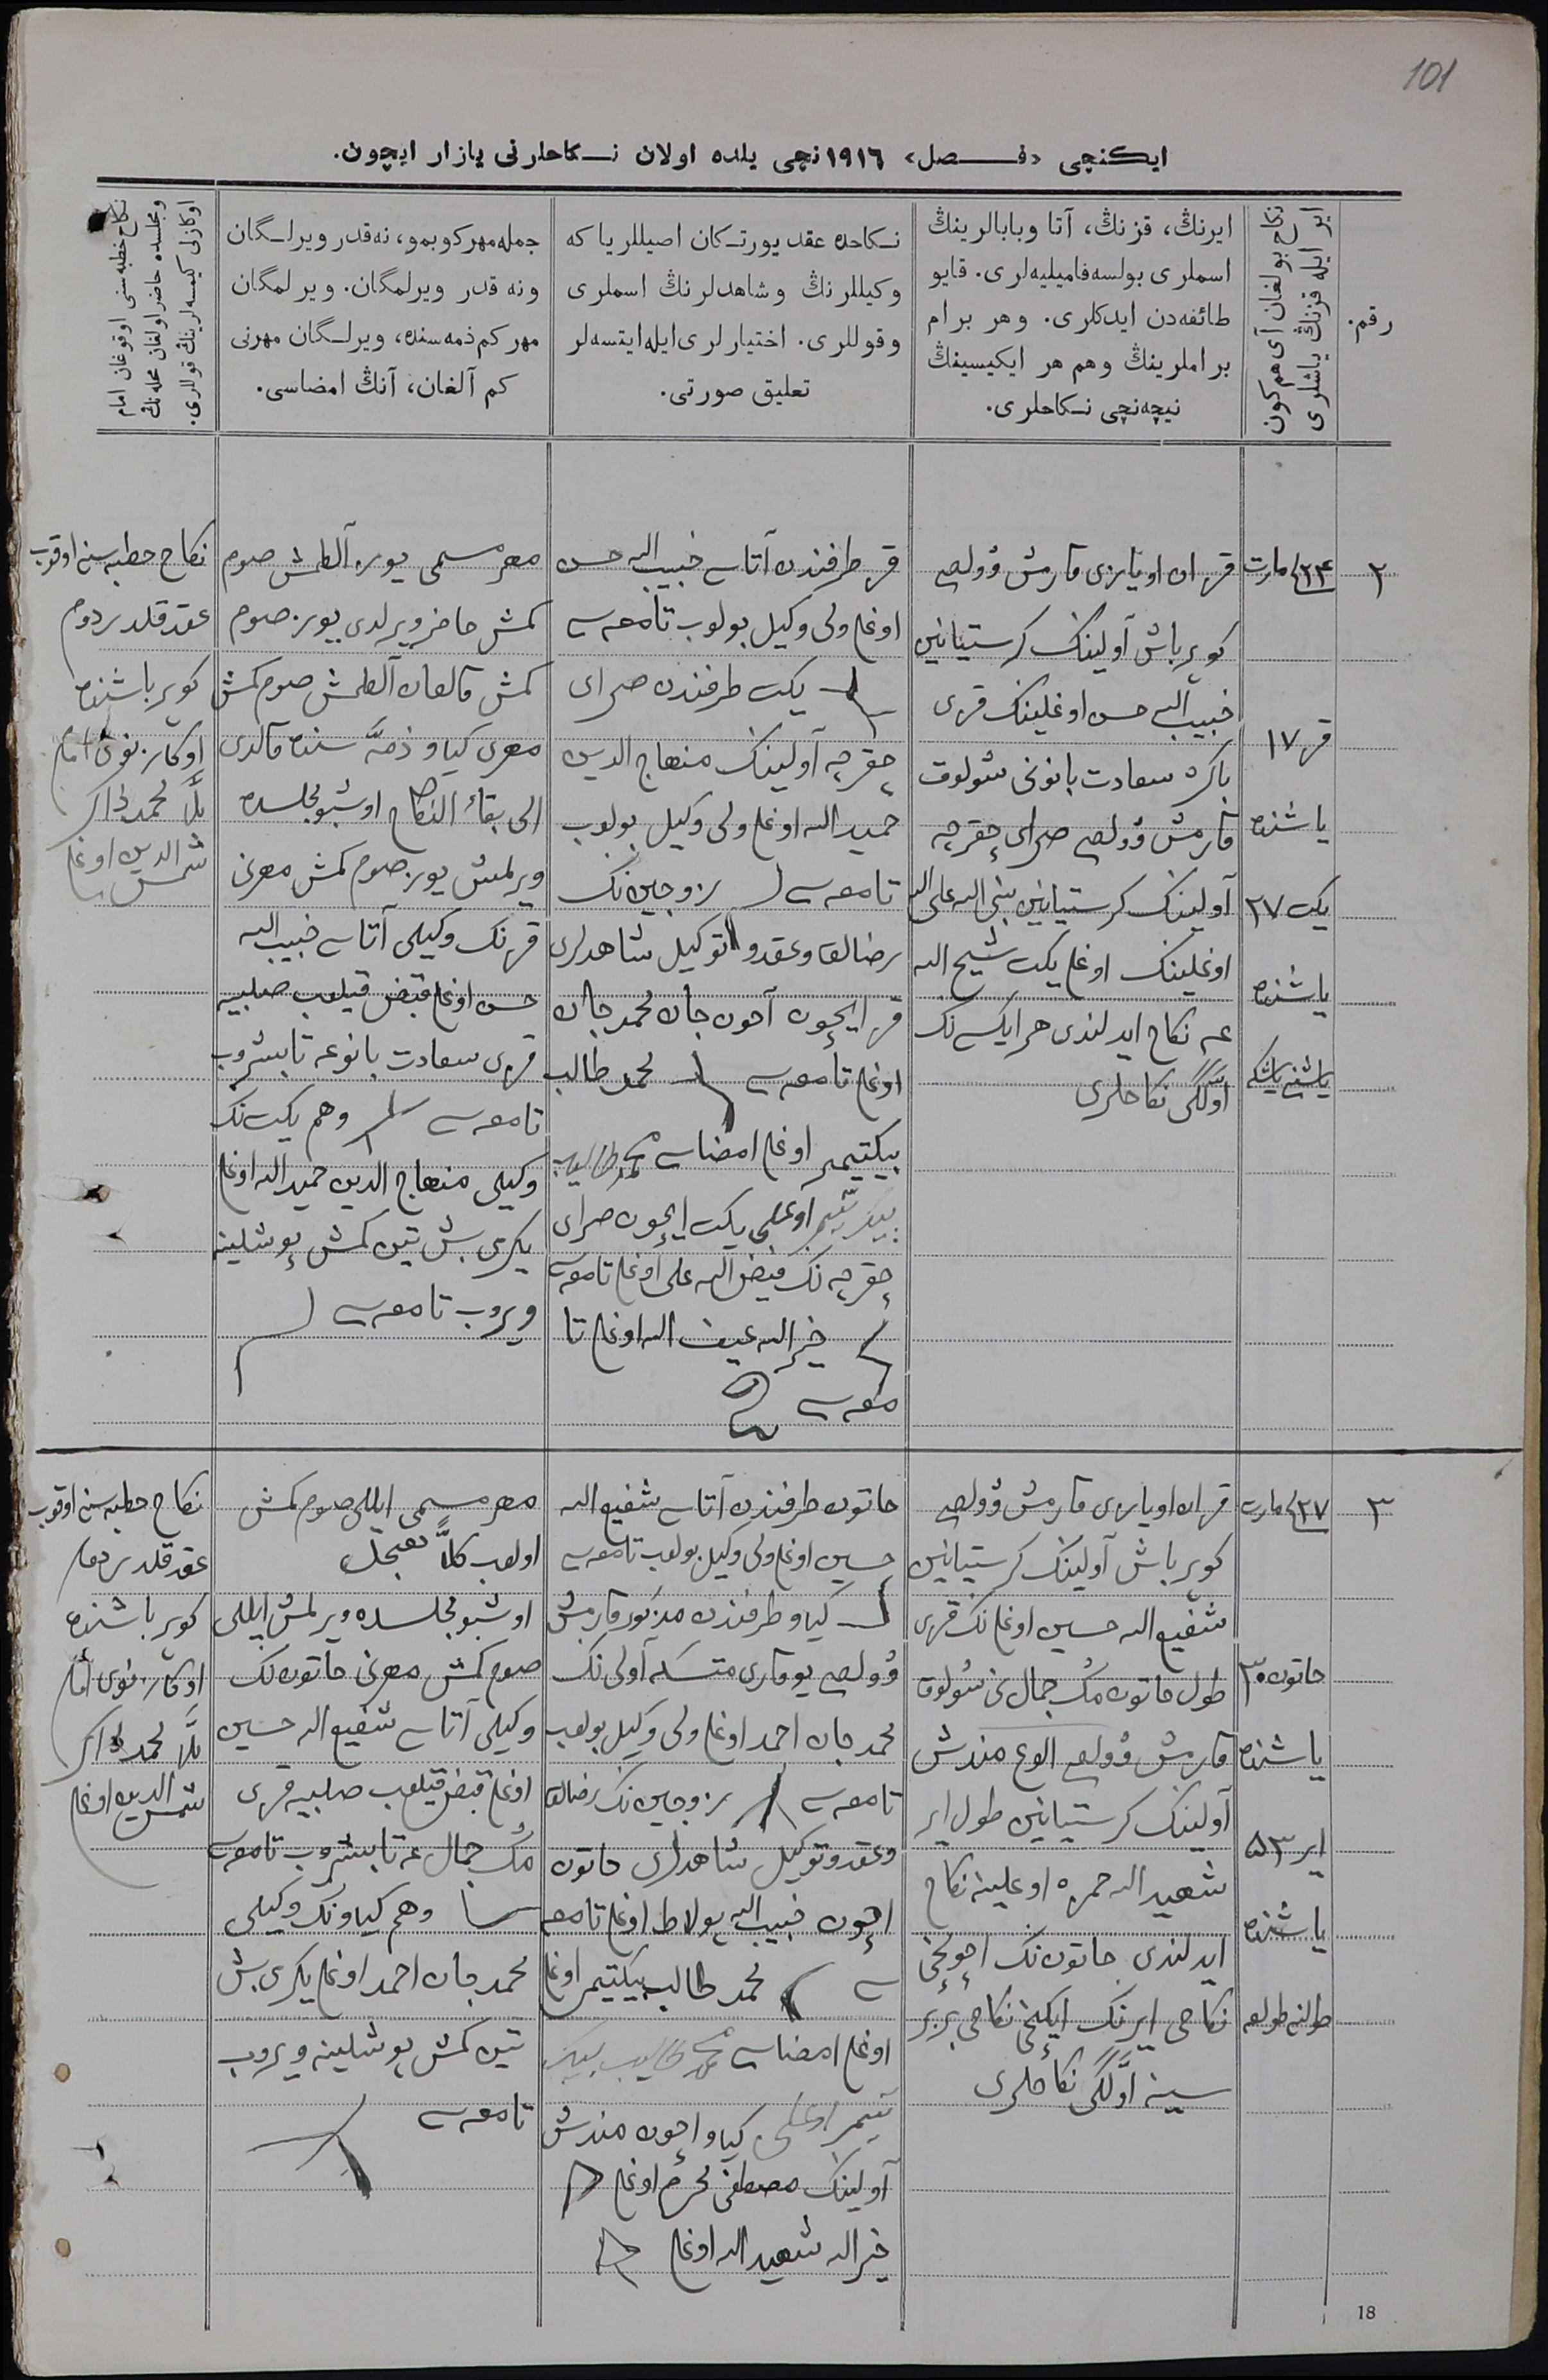 101
ایکنچی «فـصل» ١٩١٦نچی یلده اولان نـکاحلرنی یازار ایچون.
رقم.
نکاح بولغان آی هم کون
ایر ایله قزنڭ یاشلری
ایرنڭ، قزنڭ، آتا وبابالرینڭ
اسملری بولسه فامیلیه‌لری. قایو
طائفه‌دن ایدکلری. وهر برام
براملرینڭ وهم هر ایکیسینڭ
نیچه‌نچی نـکاحلری.
نـکاحده عقد یورتـکان اصیللر یا که
وکیللرنڭ وشاهدلرنڭ اسملری
وقوللری. اختیارلری ایله ایتسه‌لر
تعلیق صورتی.
جمله مهر کوبمو، نه‌قدر ویرلـگان
ونه قدر ویرلمگان. ویرلمگان
مهر کم ذمه‌سنده، ویرلـگان مهرنی
کم آلغان، آنڭ امضاسی.
نکاح خطبه‌سنی اوقوغان امام
ومجلسده حاضر اولغان محله‌نڭ
اوکازلی کیمسه‌لرینڭ قوللری.
٢
٢٤ مارت
قز ١٧
یاشنده
یکت ٢٧
یاشنده
قزان اویازی قارمش وولصی
کویرباش آولینڭ کرستیانین
خبیب الله حسن اوغلینڭ قزی
باکره سعادت بانونی شولوق
قارمش وولصی صرای چقرچه
آولینڭ کرستیانین
اوغلینڭ اوغلی یکت شیخ الله
غه نکاح ایدلندی هر ایکی سی نڭ
اوّلگی نکاحلری
قز طرفندن آتاسی خبیب الله حسن
اوغلی ولی وکیل بولوب تامغه‌سی
یکت طرفندن صرای
چقرچه آولینڭ منهاج الدین
حمید الله اوغلی ولی وکیل بولوب
تامغه‌سی زوجین نڭ
رضالق وعقد و توکیل شاهدلری
قز ایچون آخون جان محمد جان
اوغلی تامغه‌سی محمد طالب
بیکتیمر اوغلی امضاسی محمد طالب
بیکتیمر اوغلی یکت ایچون صرای
چقرچه نڭ فیض الله علی اوغلی تامغه‌سی
خیر الله اوغلی تا
مغه‌سی
مهر مسمی یوز آلطمش صوم
کمش حاضر ویرلدی یوز صوم
کمش قالغان آلطمش صوم کمش
مهری کیاو ذمّه سنده قالدی
الی بقاء النکاح اوشبو مجلسده
ویرلمش یوز صوم کمش مهرنی
قزنڭ وکیلی آتاسی خبیب الله
حسن اوغلی قبض قیلوب صلبیه
قزی سعادت بانوغه تابشروب
تامغه‌سی وهم یکت نڭ
وکیلی منهاج الدین حمید الله اوغلی
یکرمی بش تین کمش پوشلینه
ویروب تامغه‌سی
نکاح خطبه سنی اوقوب
عقد قلدردوم
کویرباشنده
اوکازنوی امام
ملا محمد ذاکر
شمس الدین اوغلی
٣
٢٧ مارت
خاتون ٣٠
یاشنده
ایر ٥٣
یاشنده
قزان اویازی قارمش وولصی
کویرباش آولینڭ کرستیانین
شفیع الله حسین اوغلی نڭ قزی
طول خاتون مڭ جمال نی شولوق
قارمش وولصی الوغ مندش
آولینڭ کرستیانین طول ایر
شهید الله حمزه اوغلینه نکاح
ایدلندی خاتون نڭ اچونچی
نکاحی ایرنڭ ایکنچی نکاحی بربر
سینه اوّلگی نکاحلری
خاتون طرفندن آتاسی شفیع الله
حسین اوغلی ولی وکیل بولوب تامغه‌سی
کیاو طرفندن مذکور قارمش
وولصی یوقاری متسکه آولی نڭ
محمد جان احمد اوغلی ولی وکیل بولوب
تامغه‌سی زوجین نڭ رضالق
وعقد وتوکیل شاهدلری خاتون
اچون خبیب الله بولاط اوغلی تامغه
سی محمد طالب بیکتیمر اوغلی
اوغلی امضاسی محمد طالب بیک
تیمر اوغلی کیاو اچون مندش
آولینڭ مصطفی محرم اوغلی
خیر الله شهید الله اوغلی
مهر مسمی ایللی صوم کمش
اولوب کلاً معجل
اوشبو مجلسده ویرلمش ایللی
صوم کمش مهرنی خاتون نڭ
وکیلی آتاسی شفیع الله حسین
اوغلی قبض قیلوب صلبیه قزی
مڭ جمال غه تابشروب تامغه‌سی
وهم کیاونڭ وکیلی
محمد جان احمد اوغلی یکرمی بش
تین کمش پوشلینه ویروب
تامغه‌سی
نکاح خطبه سنی اوقوب
عقد قلدردم
کویرباشنده
اوکازنوی امام
ملا محمد ذاکر
شمس الدین اوغلی
18